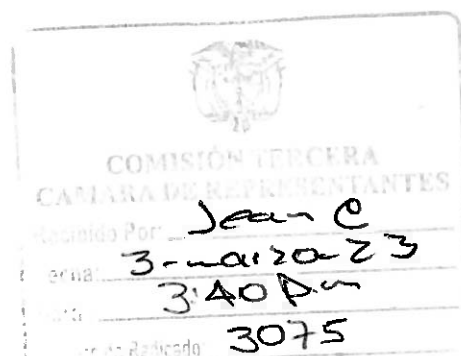 COMISIÓN TERCERA
CAMARA DE REPRESENTANTES
Recibido Por: Jean C
Fecha: 3-marzo-23
Hora: 3:40 Pm
de Radicado: 3075